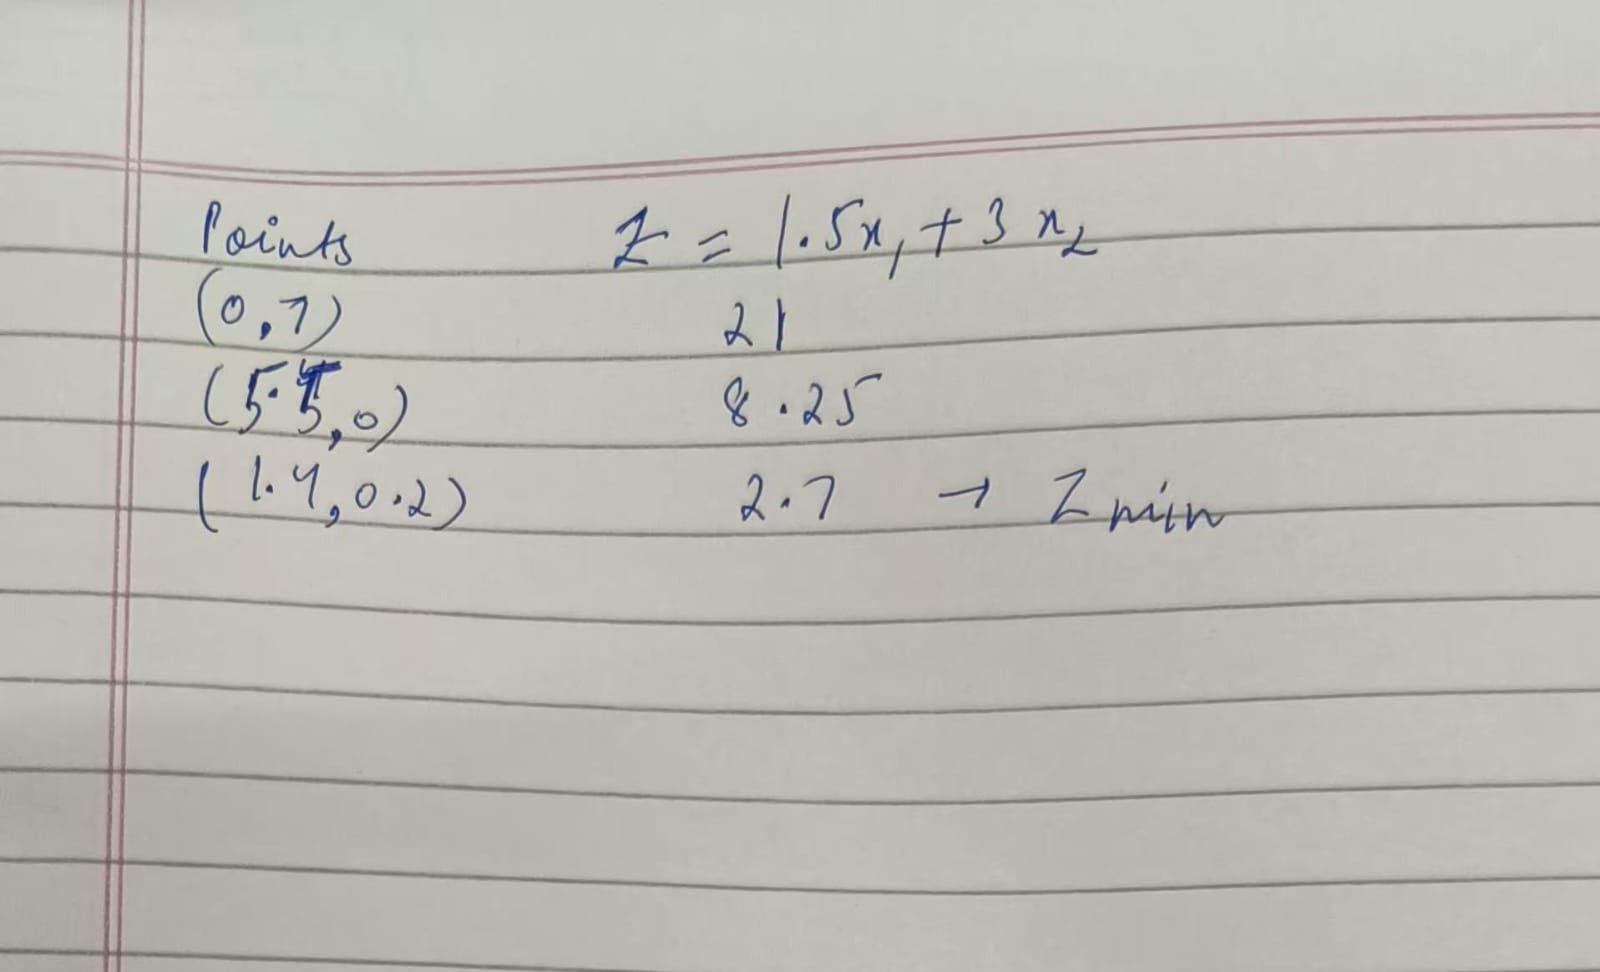 Points Z = 1.5x₁ + 3x₂
(0,7) 21
(5.5,0) 8.25
(1.4,0.2) 2.7 → Z min